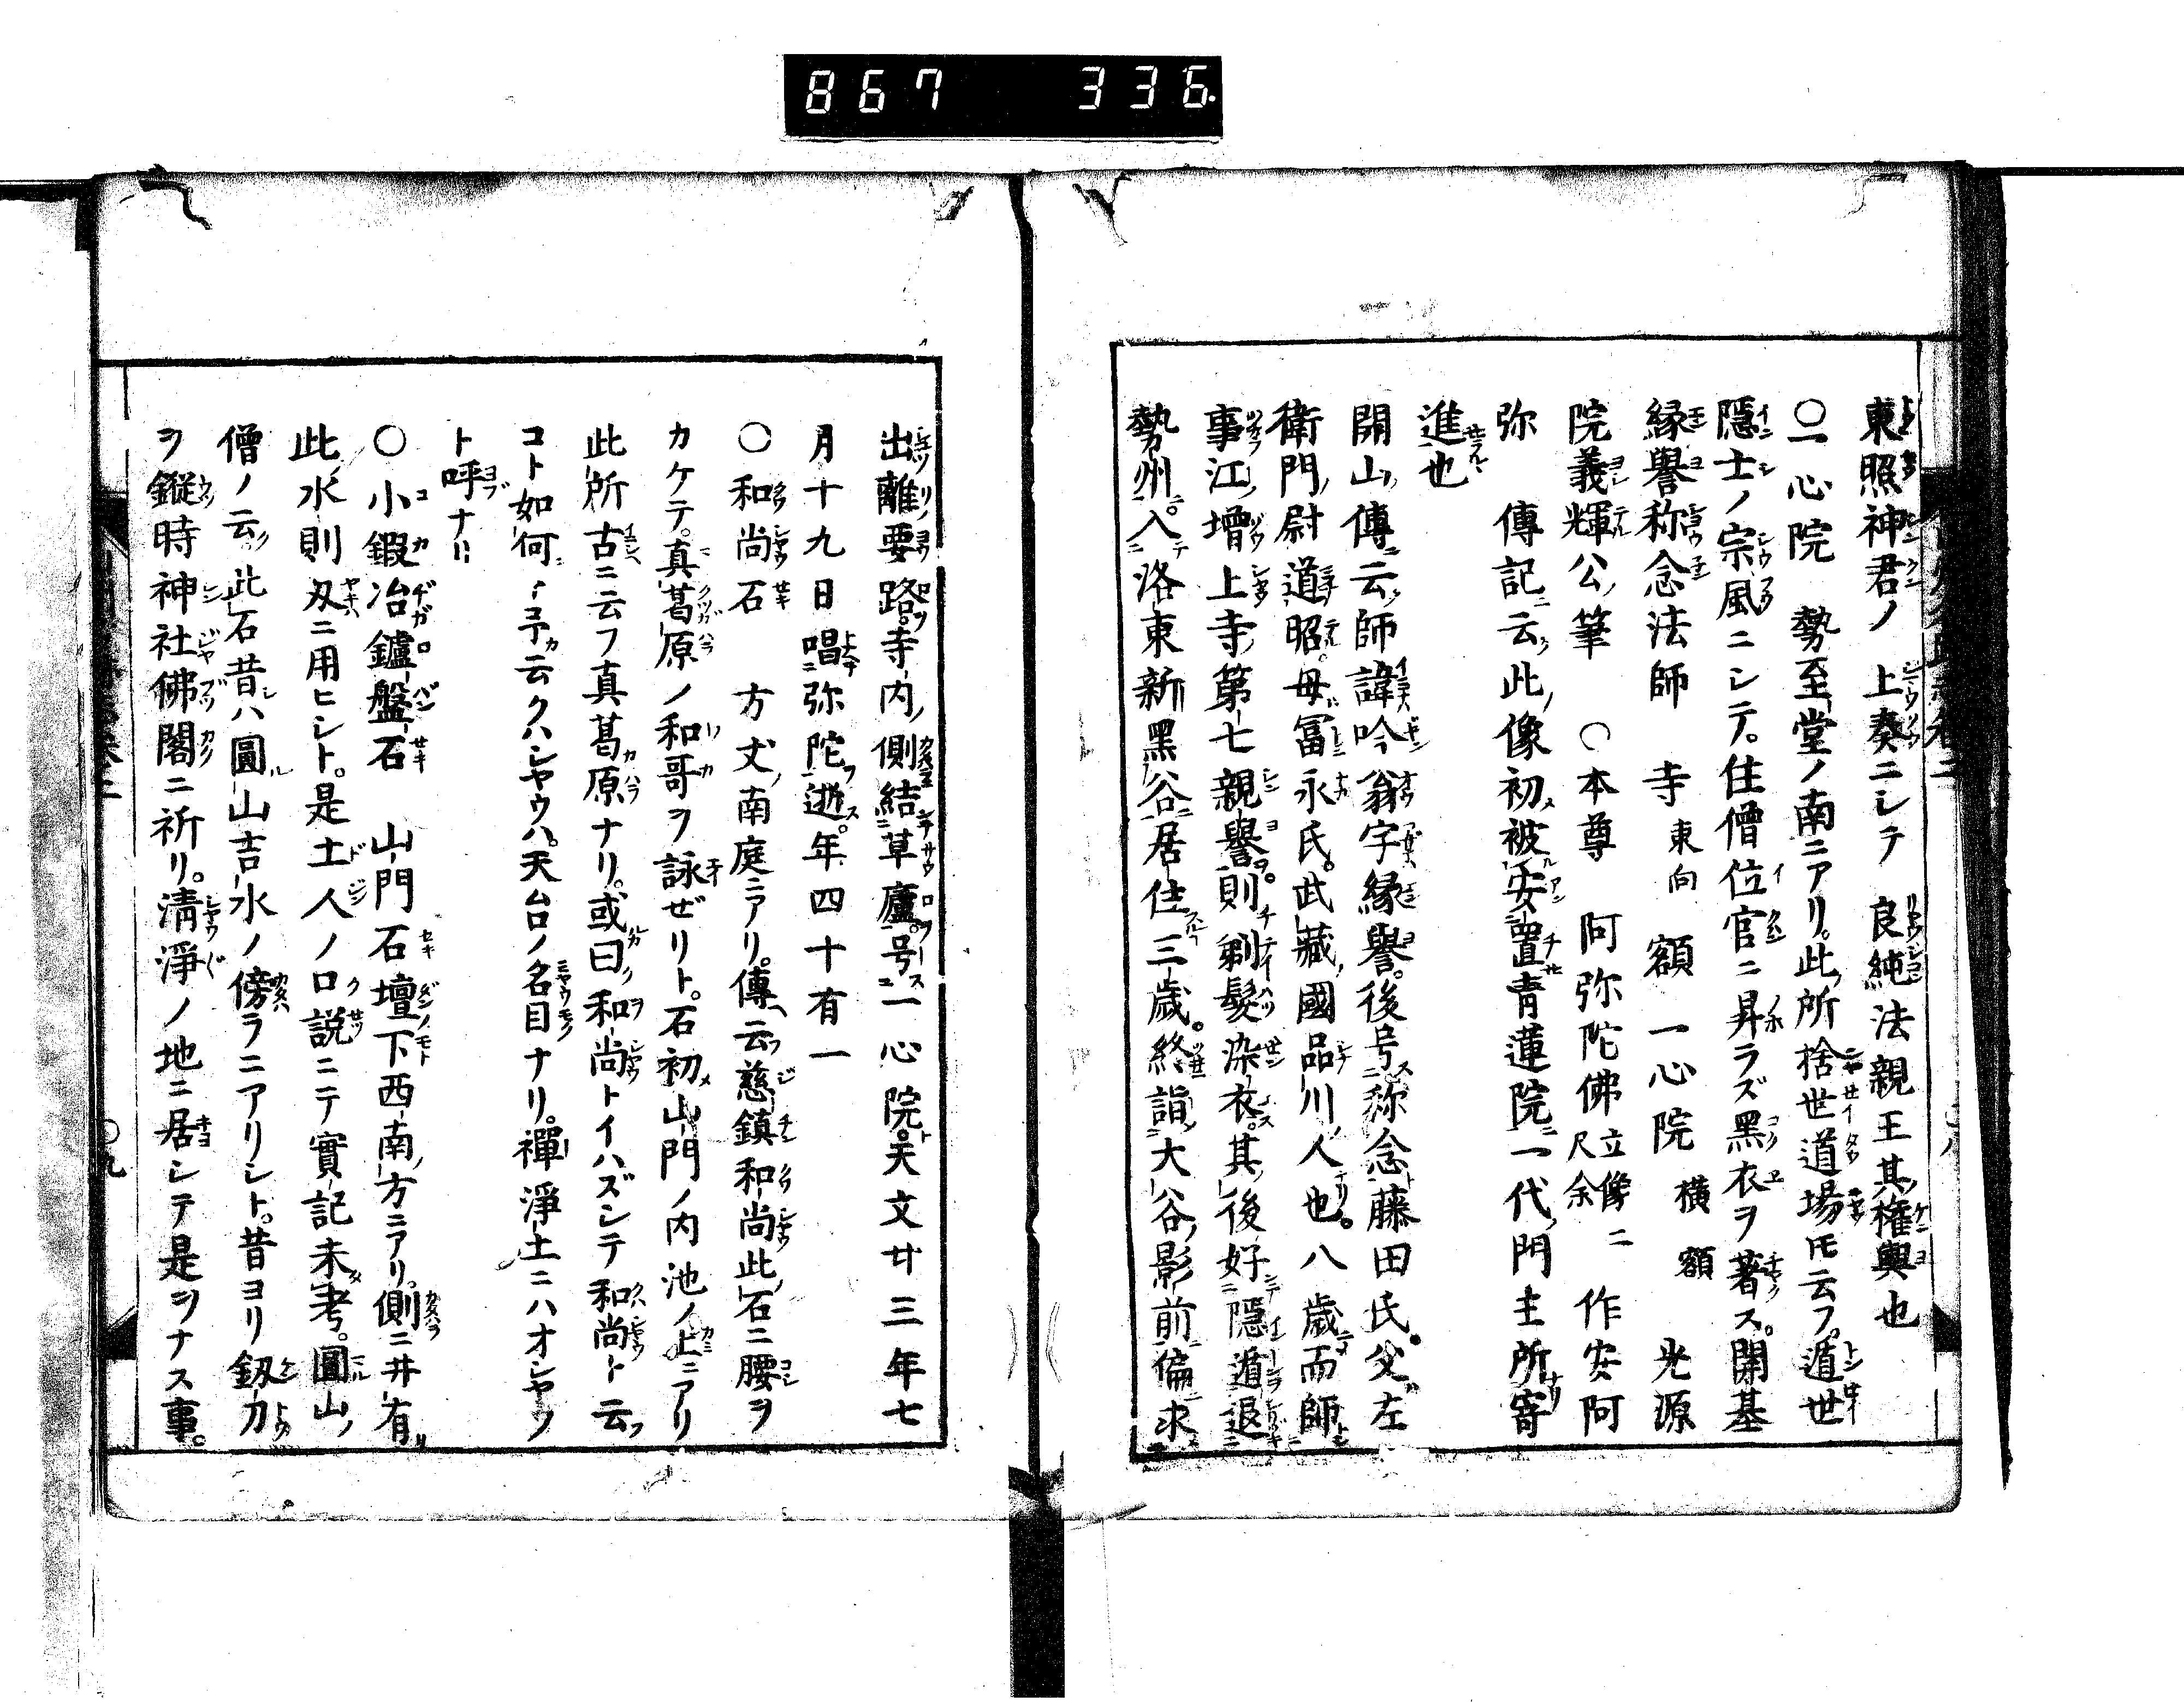 867 336
東照神君ノ上奏ニシテ良純法親王其権輿也
〇一心院 勢至堂ノ南ニアリ。此所捨世道場モ云フ。遁世
隠士ノ宗風ニシテ。住僧位官ニ昇ラズ黑衣ヲ著ス。開基
縁譽称念法師 寺東向 額 一心院 横額 光源
院義輝公筆 〇本尊 阿弥陀佛 立像二尺余 作安阿
弥 傳記云此像初被安置青蓮院一代門主所寄
進也
開山傳云師諱吟翁字縁譽。後号称念藤田氏。父左
衛門尉道昭。母冨永氏。武藏國品川人也。八歳而師
事江増上寺第七親譽。則剃髮染衣。其後好隱遁退
勢州。入洛東新黑谷居住三歳。終詣大谷影前偏求
出離要路。寺内側結草廬。号一心院。天文廿三年七
月十九日唱弥陀逝。年四十有一
〇和尚石 方丈南庭ニアリ。傳云慈鎮和尚此石ニ腰ヲ
カケテ。真葛原ノ和哥ヲ詠ぜリト。石初山門ノ内池ノ上ニアリ
此所古ニ云フ真葛原ナリ。或曰和尚トイハズシテ和尚ト云
コト如何予云クハシヤウハ。天台ノ名目ナリ。禪淨土ニハオシヤウ
ト呼ナリ
〇小鍜冶鑪盤石 山門石壇下西南方ニアリ。側ニ井有
此水則刄ニ用ヒシト。是土人ノ口説ニテ實記未考。圓山ノ
僧ノ云此石昔ハ圓山吉水ノ傍ラニアリシト。昔ヨリ釼刀
ヲ鏦時神社佛閣ニ祈リ。清淨ノ地ニ居シテ是ヲナス事。
〇九